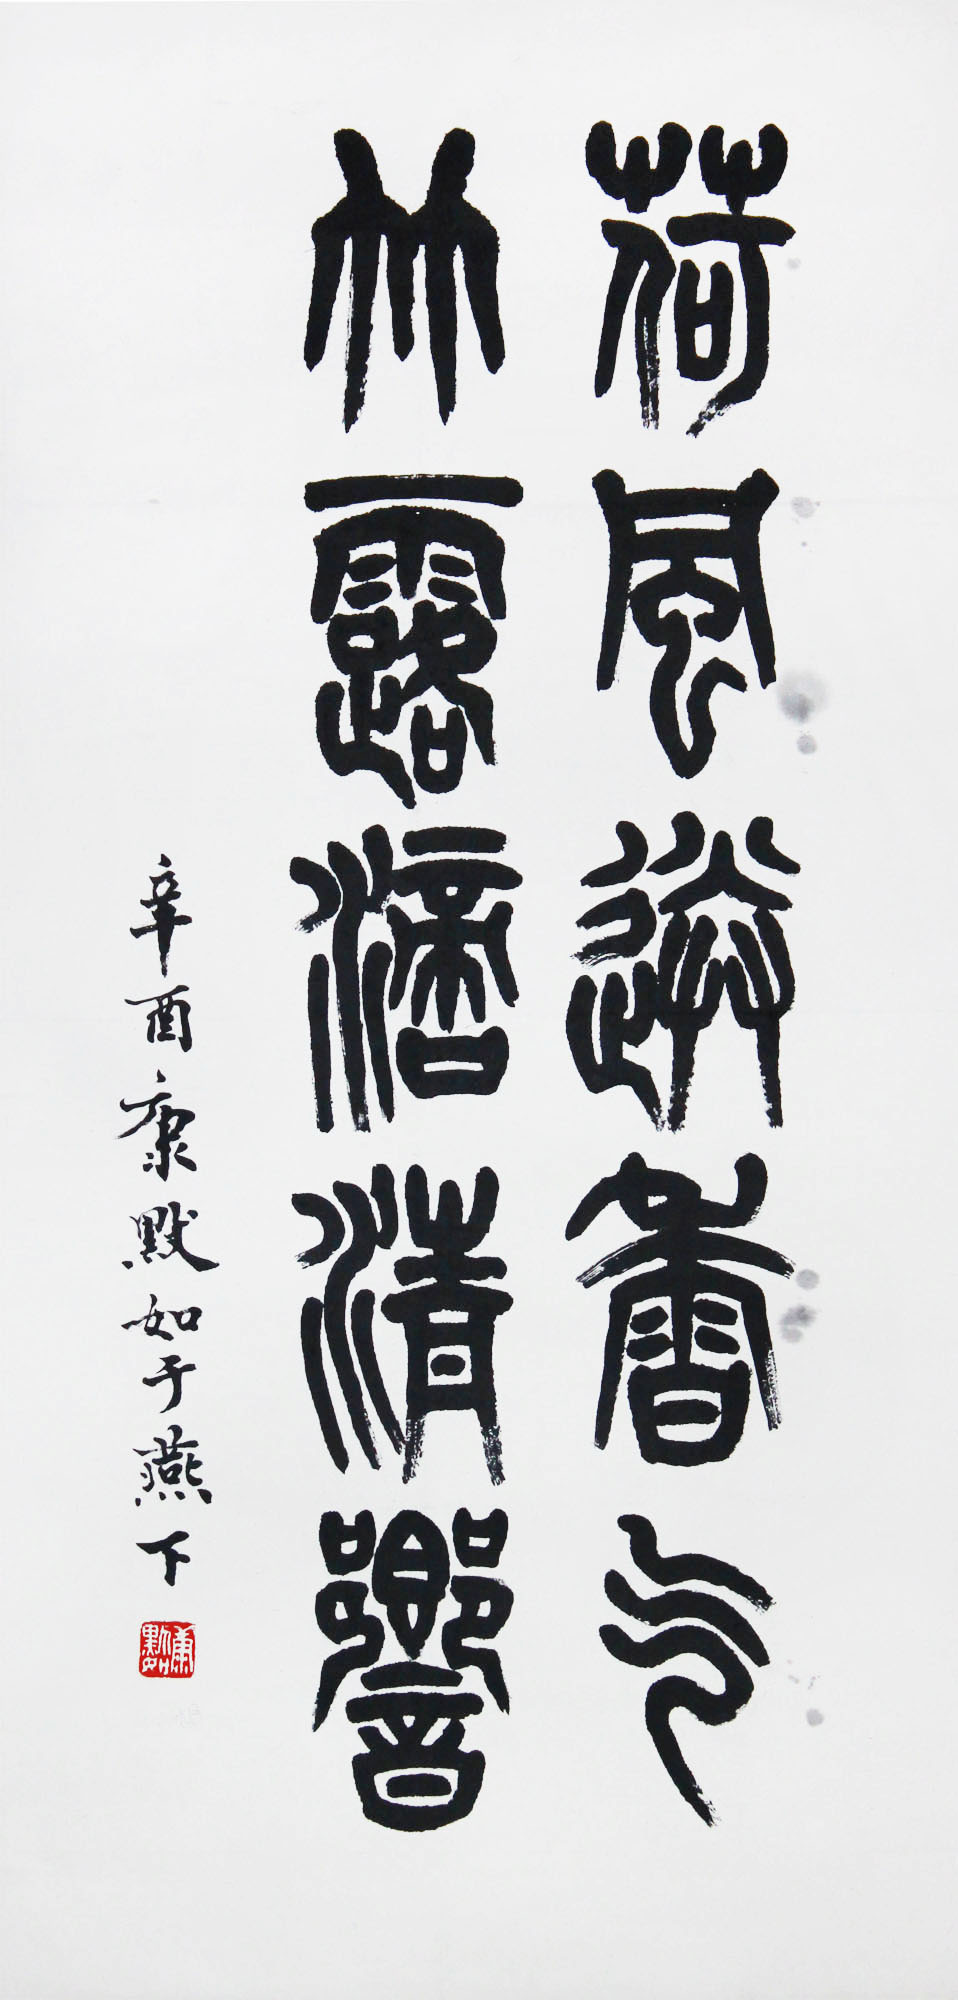 荷風送香气
竹露滴清響
辛酉康默如于燕下
康默如